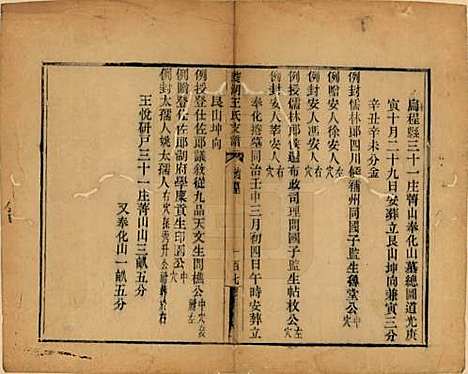 烏程縣三十一庄菁山奉化山墓總圖道光庚
寅十月二十九日安葬立艮山坤向兼寅三分
辛丑辛未分金
例封儒林郎四川候補州同國子監生磚堂公中穴
例贈安人徐安人右穴
例授儒林郎候選布政司理問國子監生帖枚公左穴
例封安人馮安人右穴
例封安人寧安人左穴
奉化捲墓同治壬申三月初四日午時安葬立
王氏支譜
墓
一百七
艮山坤向
例授登仕佐郎議敘從九品天文生問樵公中穴葵左
例贈登仕佐郎湖府學廩貢生印園公穴
例封太孺人姚太孺人右穴
王悅研戶三十一庄菁山山三畝五分
又奉化山一畝五分